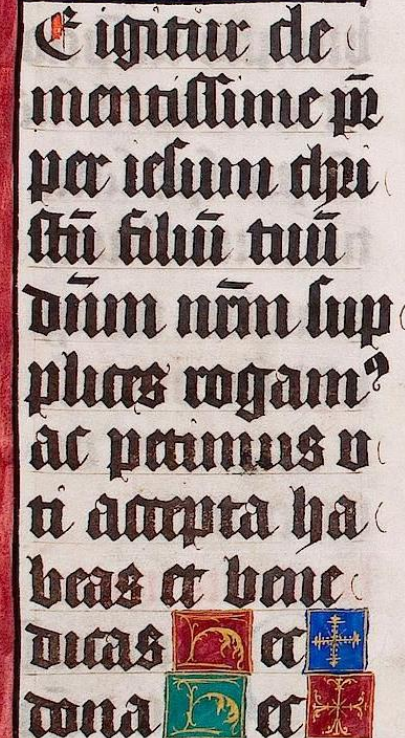 E igitur cle
mentissime pr̄
per iesum chri
stū filiū tuū
dn̄um nr̄m sup
plices rogam⁹
ac petimus v
ti accepta ha
beas et bene
dicas H ec ✠
dona H ec ✠